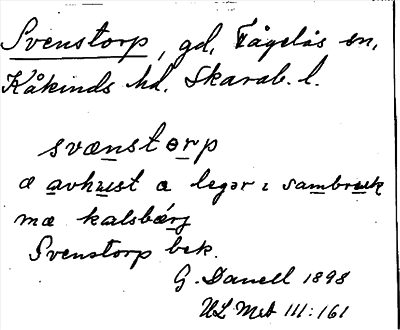 Svenstorp, gd, Fågelås sn,
Kåkinds hd. Skarab. l.
svænstɵrp
a avhust a legər ı sambruk
mæ kalsbærj
Svenstorp bek.
G. Danell 1898
UL Met III:161